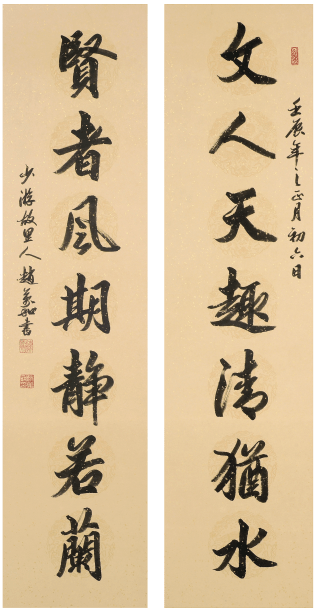 壬辰年之正月初六日
文人天趣清猶水
賢者風期靜若蘭
少游故里人趙書